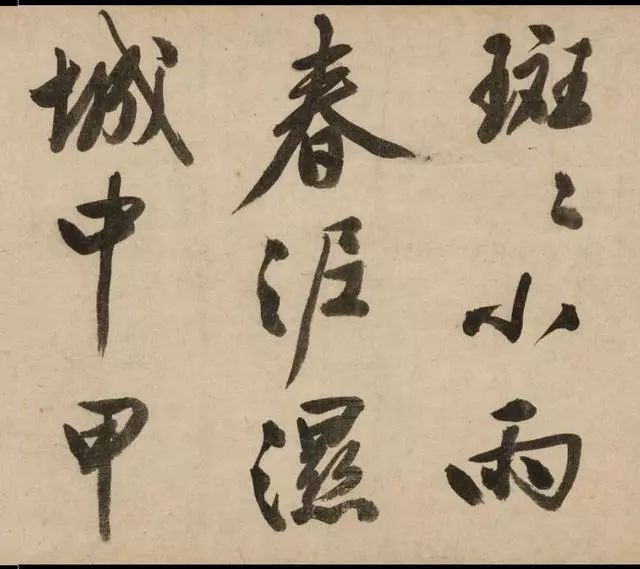 斑〻小雨
春泥濕
城中甲